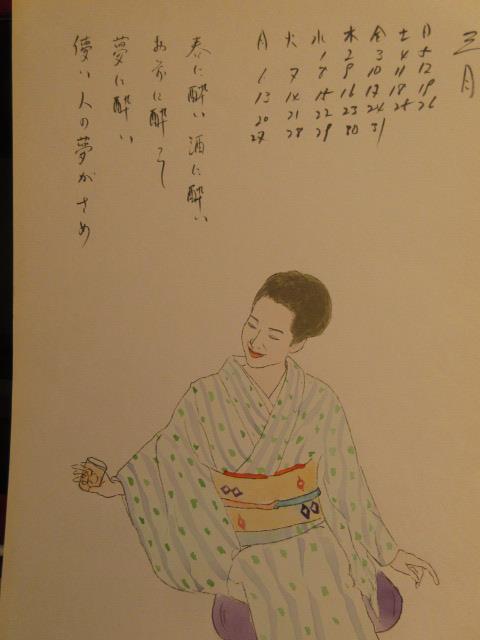 三月
月 火 水 木 金 土 日
1 2 3 4 5
6 7 8 9 10 11 12
13 14 15 16 17 18 19
20 21 22 23 24 25 26
27 28 29 30 31
春に酔い 酒に酔い
お前に酔って
夢に酔い
儚い人の夢がさめ